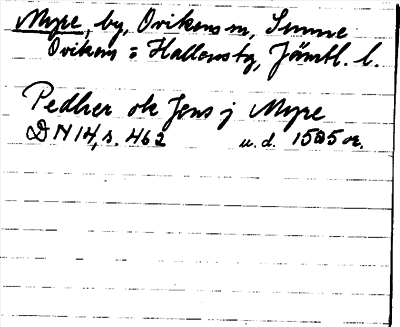 Myre, by, Ovikens sn, Sunne
Ovikens o Hallenstg, Jämtl. l.
Pedher ok Jens j Myre
DN 14, s. 462 u.d. 1525 or.